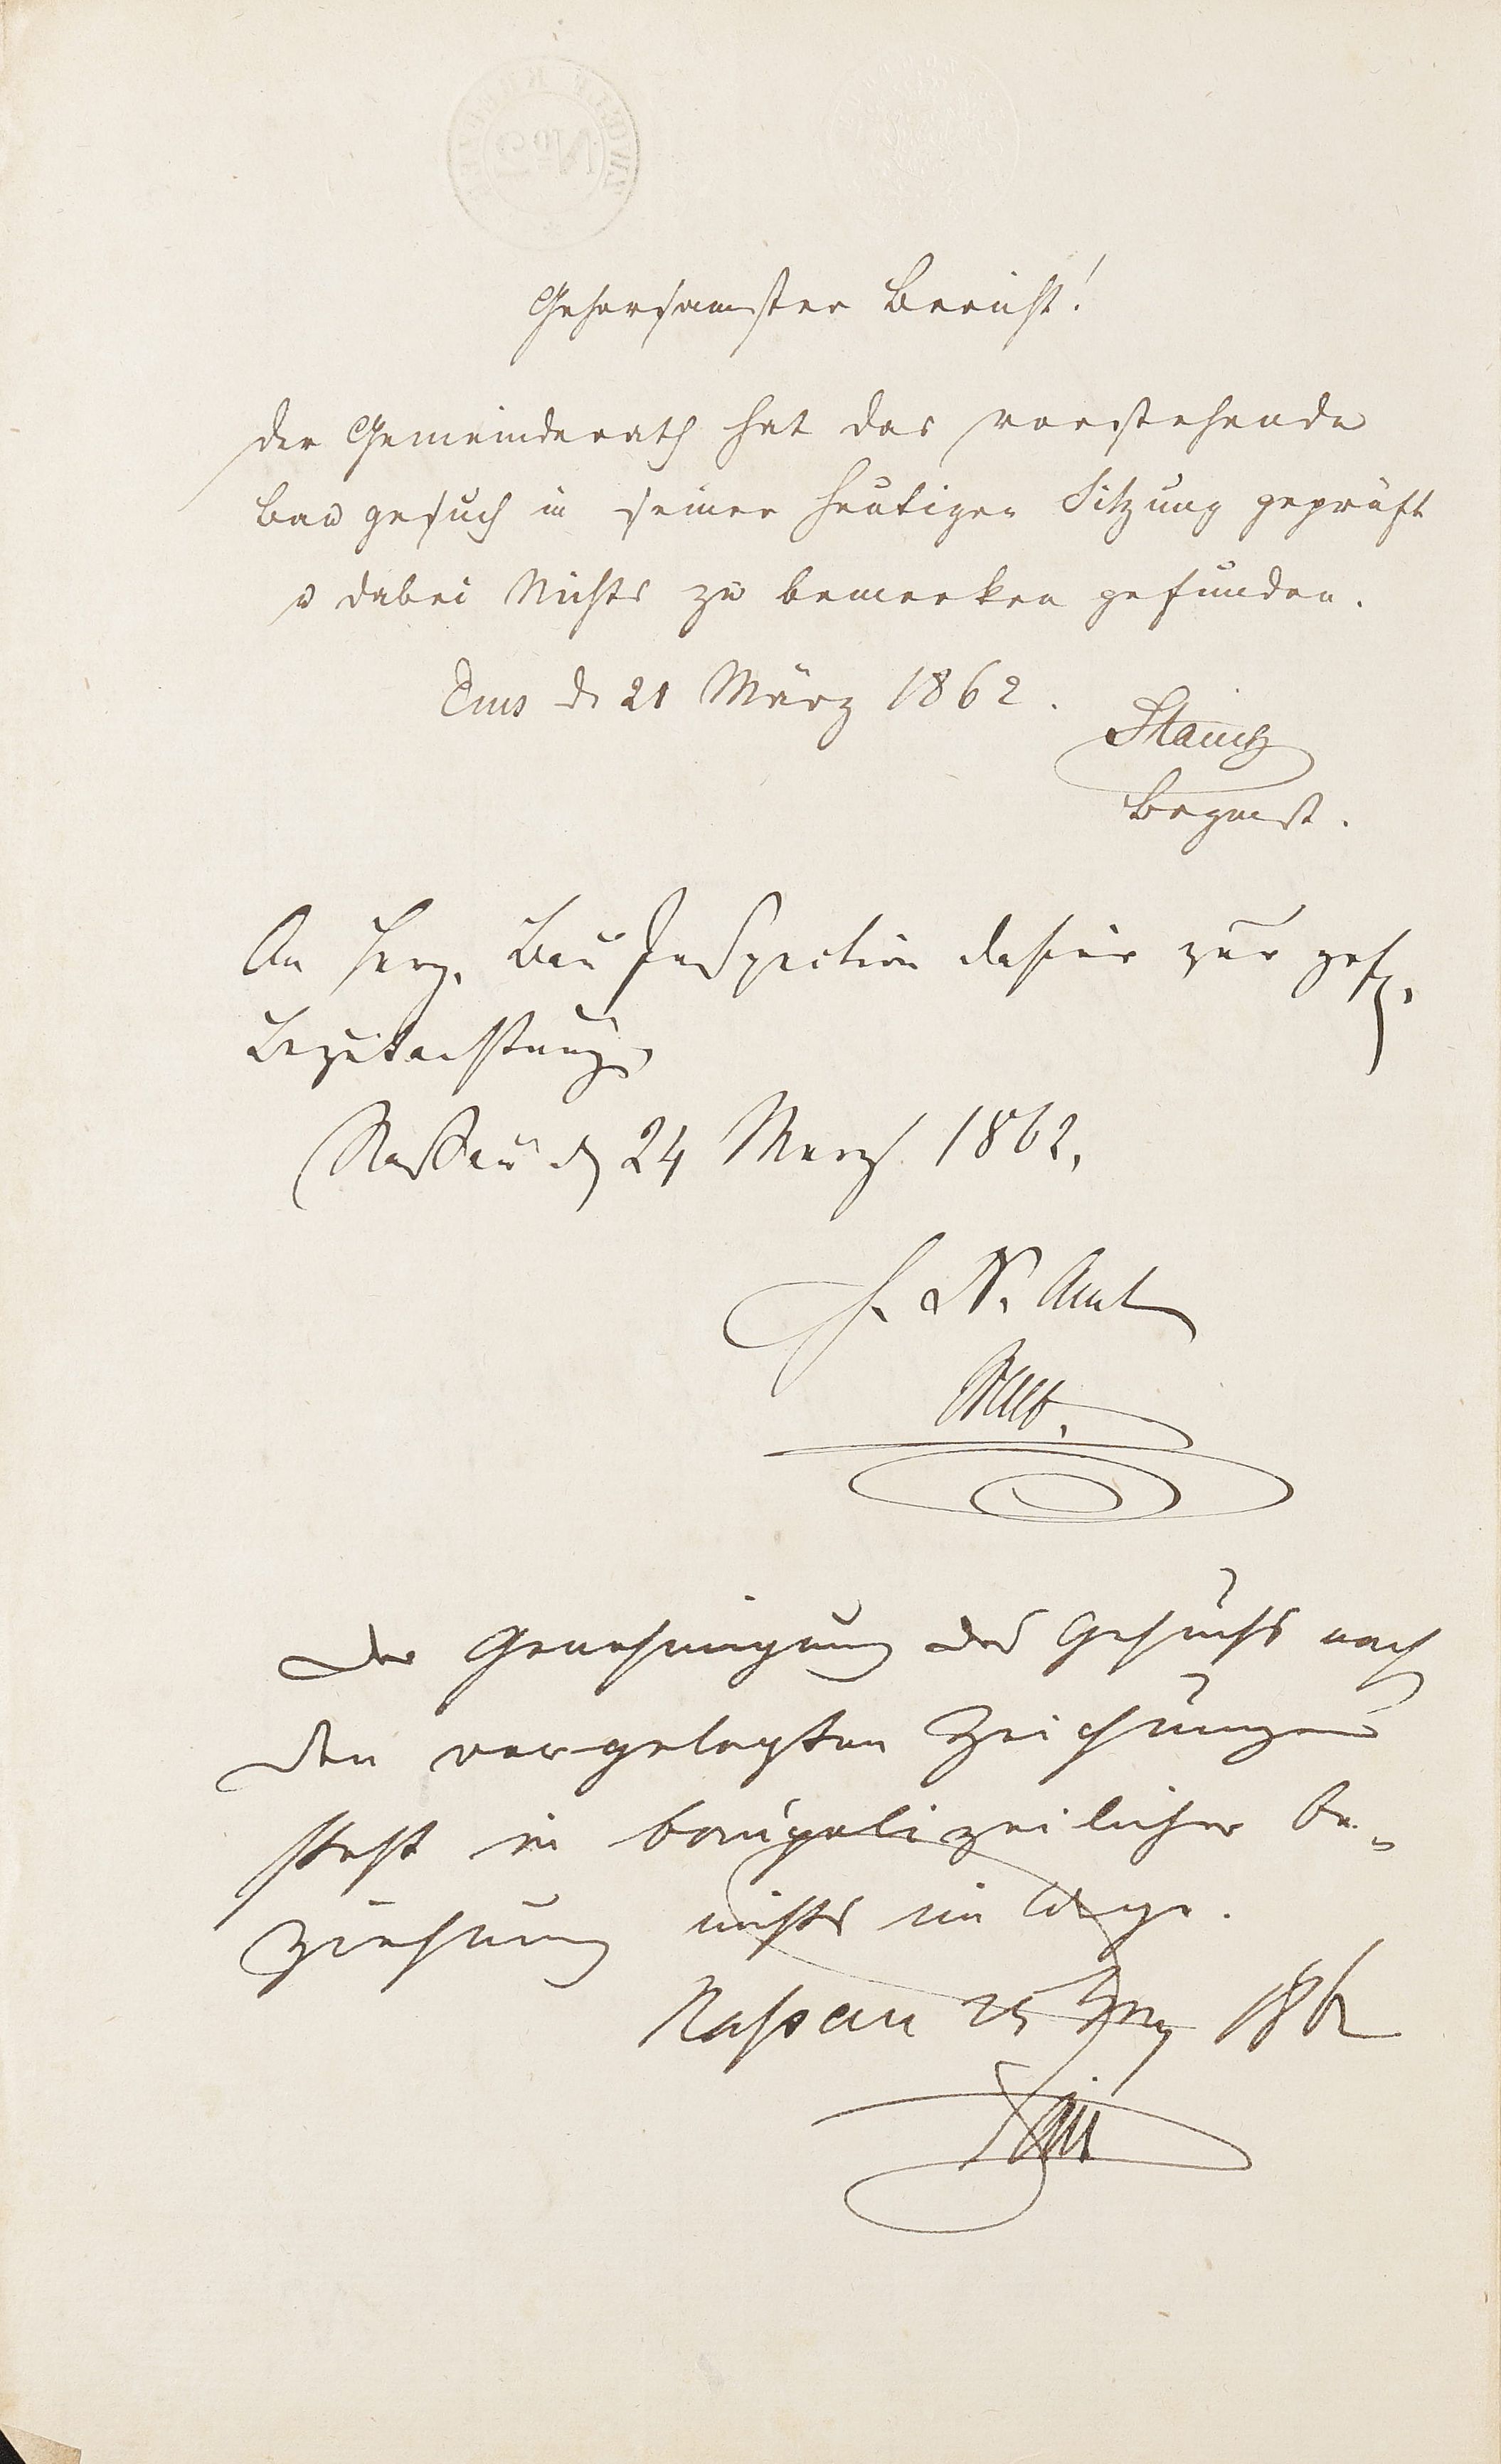 No 2
Gehorsamster Bericht!
Der Gemeinderath hat das vorstehende
Bau gesuch in seiner heutigen Sitzung geprüft
u dabei Nichts zu bemerken gefunden.
Ems d 21 März 1862.
Bgmst.
An Herz. Bau Inspection dahier zur gef.
Begutachtung.
Nassau d 24 Merz 1862.
H. N. Amt
Der Genehmigung des Gesuchs nach
den vorgelegten Zeichnungen
steht in baupolizeilicher Be-
ziehung nichts im Wege.
Nassau 25 Mrz 1862